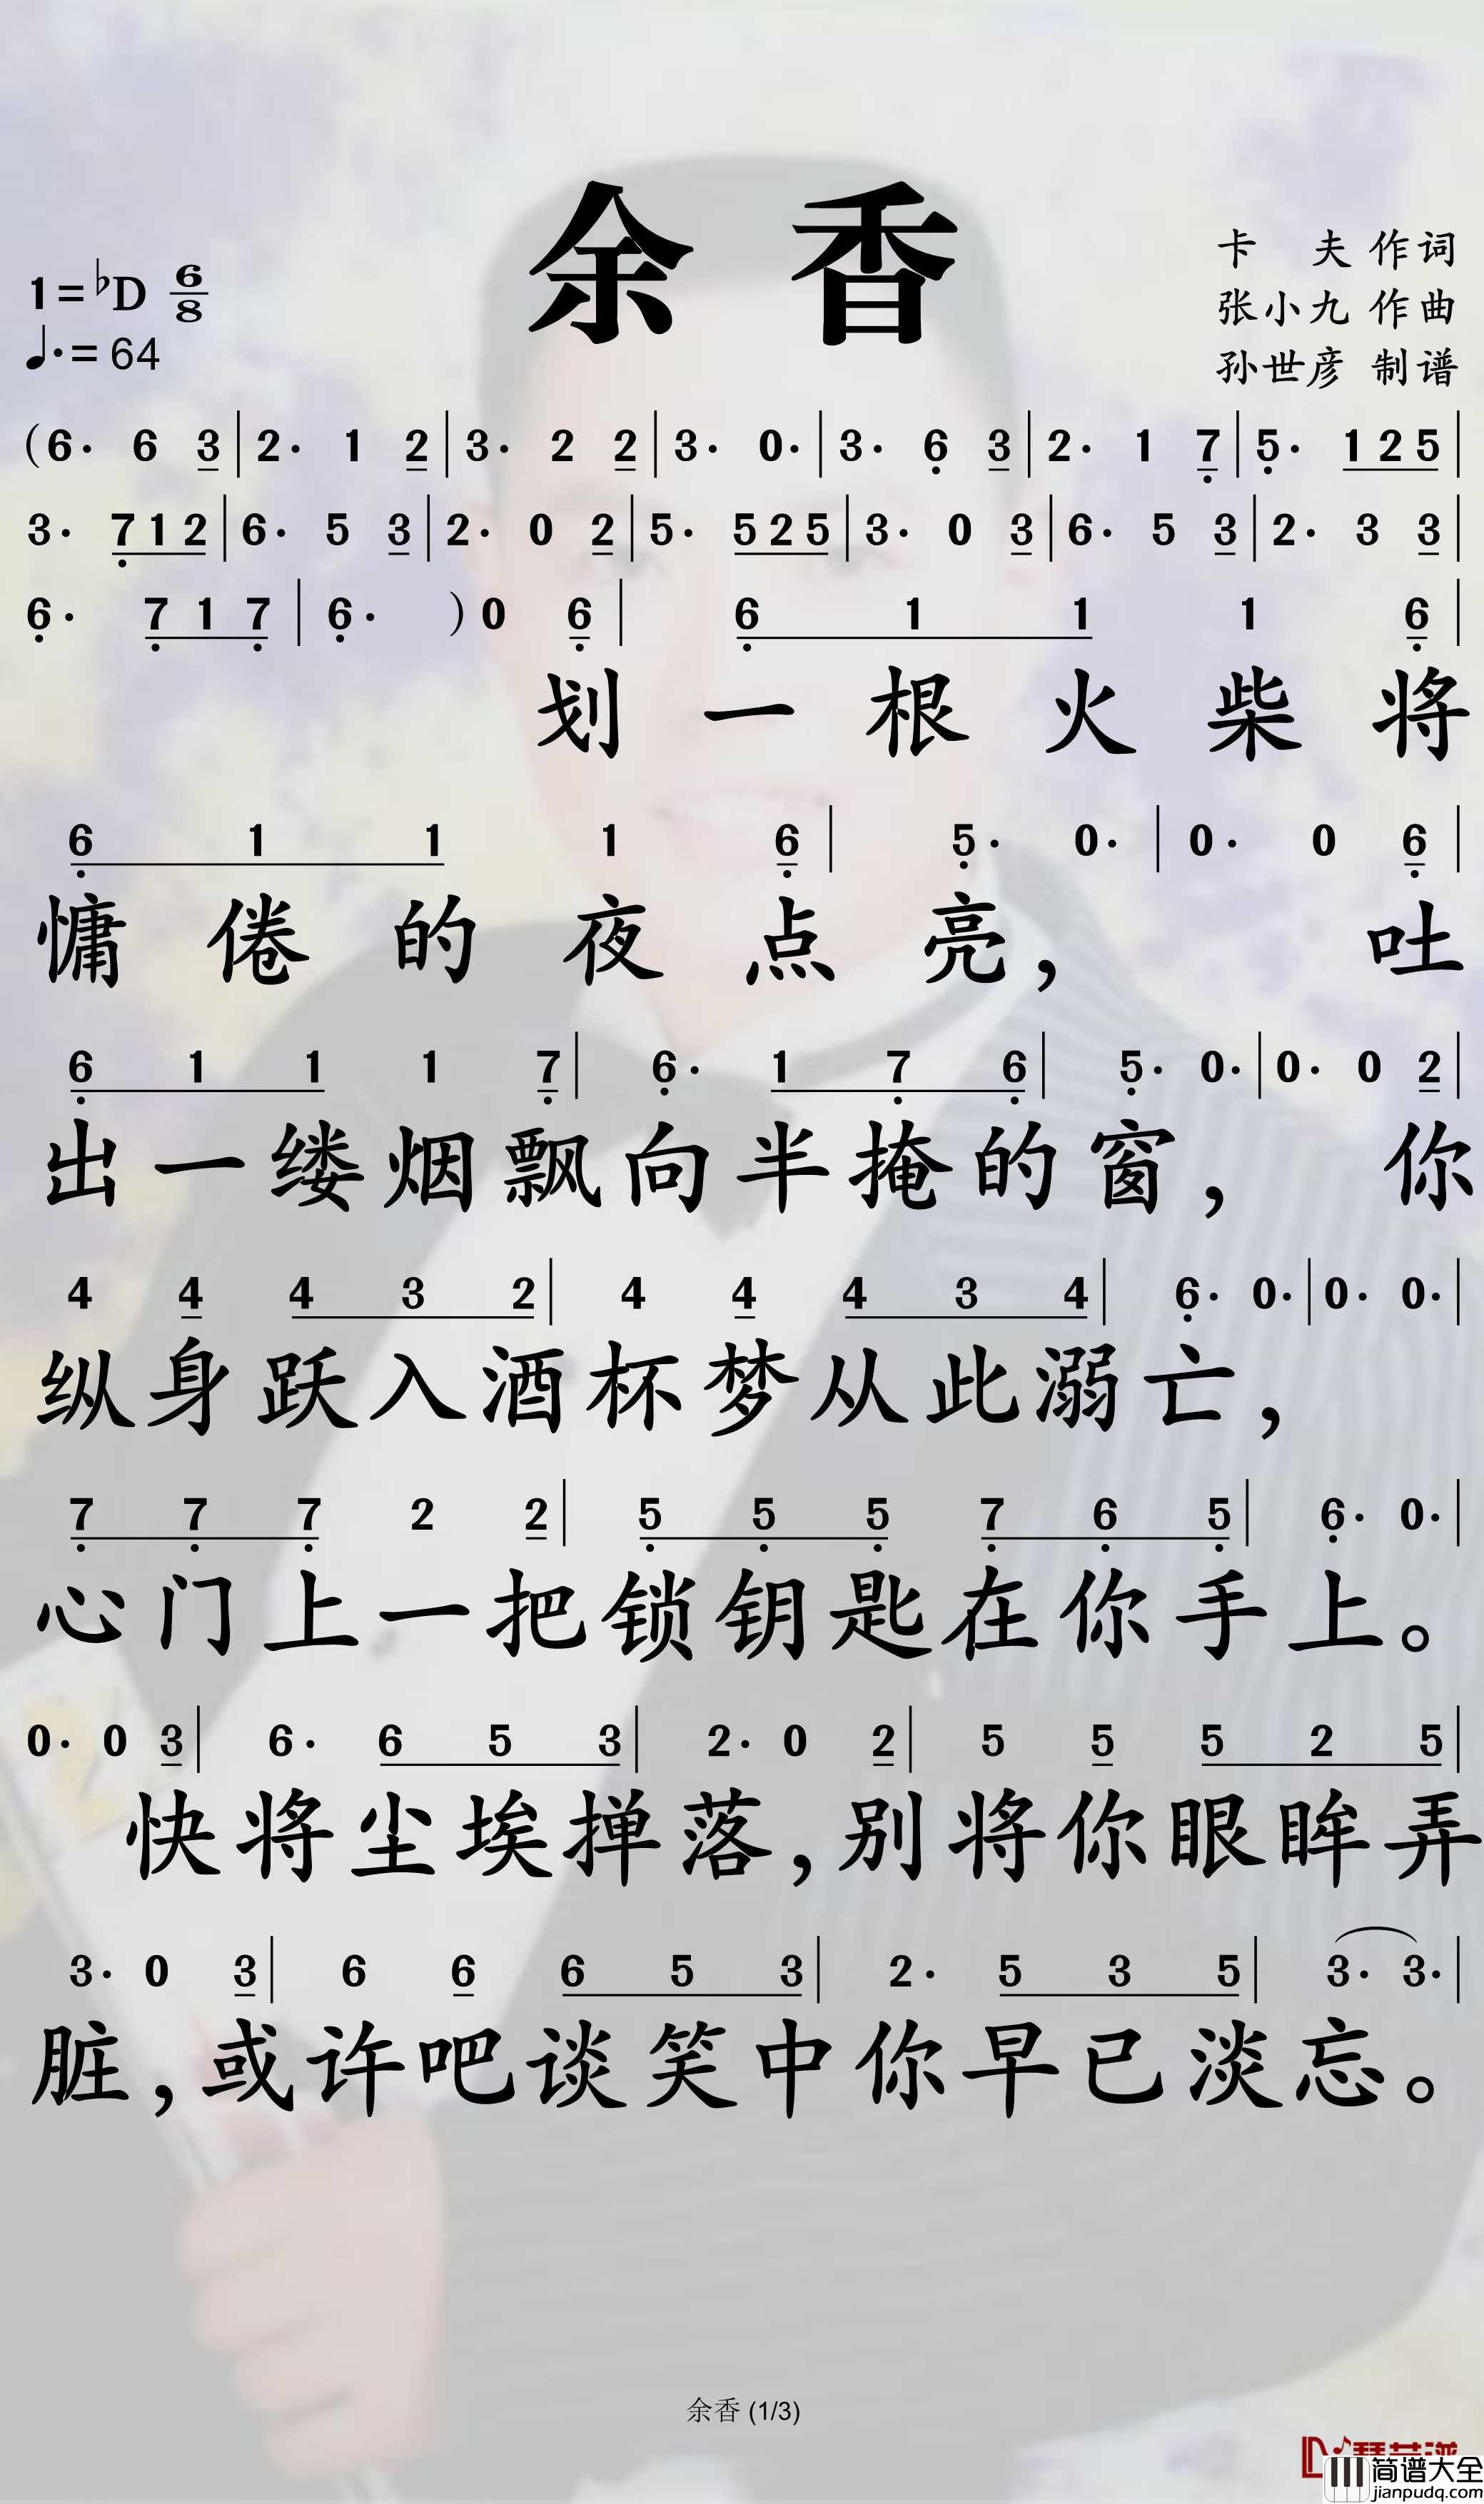 余香
卡 夫 作词
1=♭D 6/8
张小九 作曲
♩.=64
孙世彦 制谱
(6· 6 3|2· 1 2|3· 2 2|3· 0·|3· 6̣ 3|2· 1 7̣|5̣· 1 2 5|
3· 7̣ 1 2|6· 5 3|2· 0 2|5· 5 2 5|3· 0 3|6· 5 3|2· 3 3|
6̣· 7̣ 1 7̣|6̣· )0 6̣|6̣ 1 1 1 6̣|
划一根火柴将
6̣ 1 1 1 6̣|5̣· 0·|0· 0 6̣|
慵倦的夜点亮，吐
6̣ 1 1 1 7̣|6̣· 1 7̣ 6̣|5̣· 0·|0· 0 2|
出一缕烟飘向半掩的窗，你
4 4 4 3 2|4 4 4 3 4|6̣· 0·|0· 0·|
纵身跃入酒杯梦从此溺亡，
7̣ 7̣ 7̣ 2 2|5̣ 5̣ 5̣ 7̣ 6̣ 5̣|6̣· 0·|
心门上一把锁钥匙在你手上。
0· 0 3|6· 6 5 3|2· 0 2|5 5 5 2 5|
快将尘埃掸落，别将你眼眸弄
3· 0 3|6 6 6 5 3|2· 5 3 5|3· 3·|
脏，或许吧谈笑中你早已淡忘。
余香 (1/3)
简谱大全
jianpudq.com